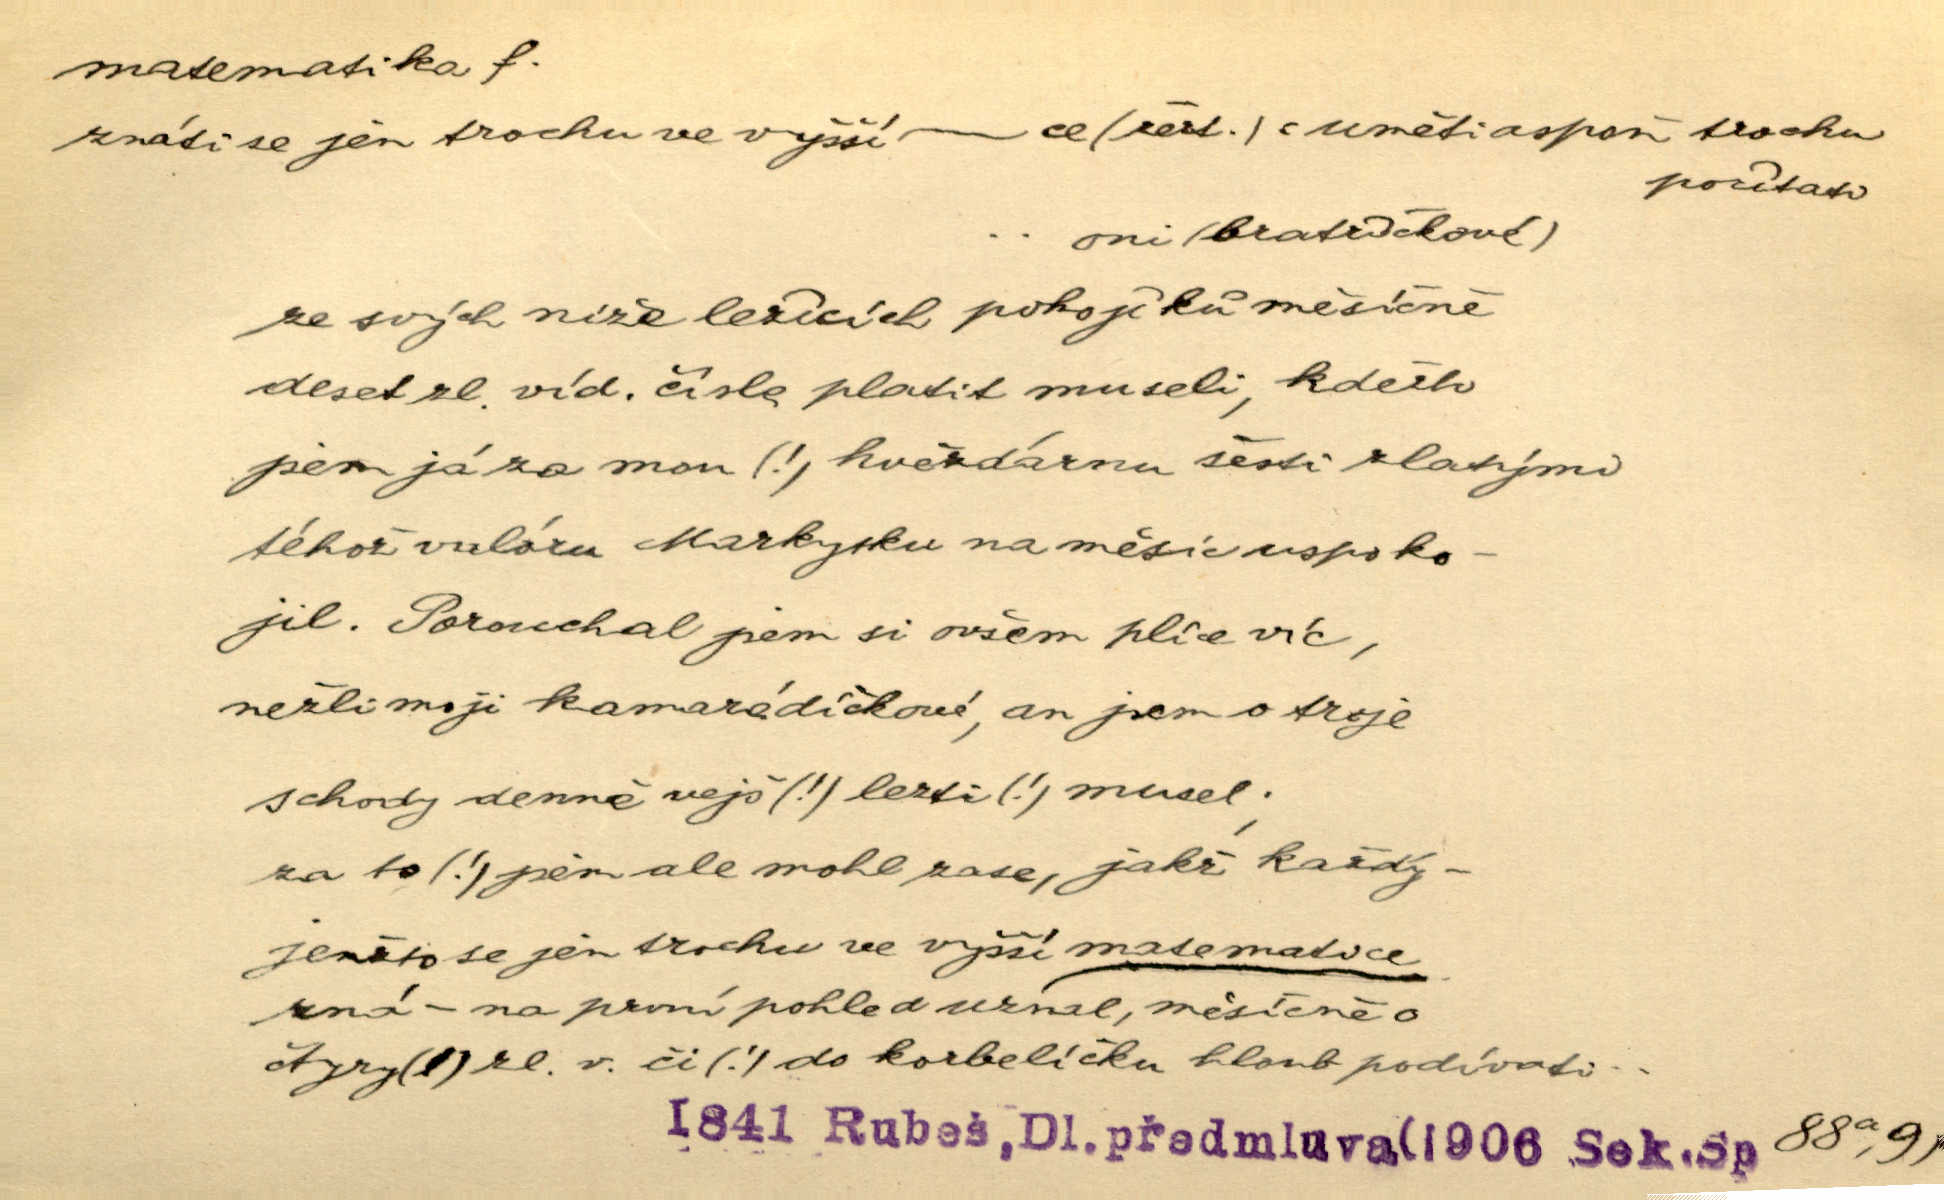 matematika f.
znáti se jen trochu ve vyšší — ce (žert.) = uměti aspoň trochu
počítati
.. oni (bratříčkové)
ze svých níže ležících pokojíků měsíčně
deset zl. víd. čísla platit museli, kdežto
jsem já za mou (!) hvězdárnu šesti zlatými
téhož valóru Markysku na měsíc uspoko-
jil. Porouchal jsem si ovšem plíce víc,
nežli moji kamarádíčkové, an jsem o troje
schody denně vejš (!) lezti (!) musel;
za to (!) jsem ale mohl zase, jakž každý –
jenžto se jen trochu ve vyšší matematice
zná – na první pohled uznal, měsíčně o
čtyry (!) zl. v. či (!) do korbelíčku hloub podívati ..
1841 Rubeš, Dl. předmluva (1906 Sek. Sp 88a, 9)